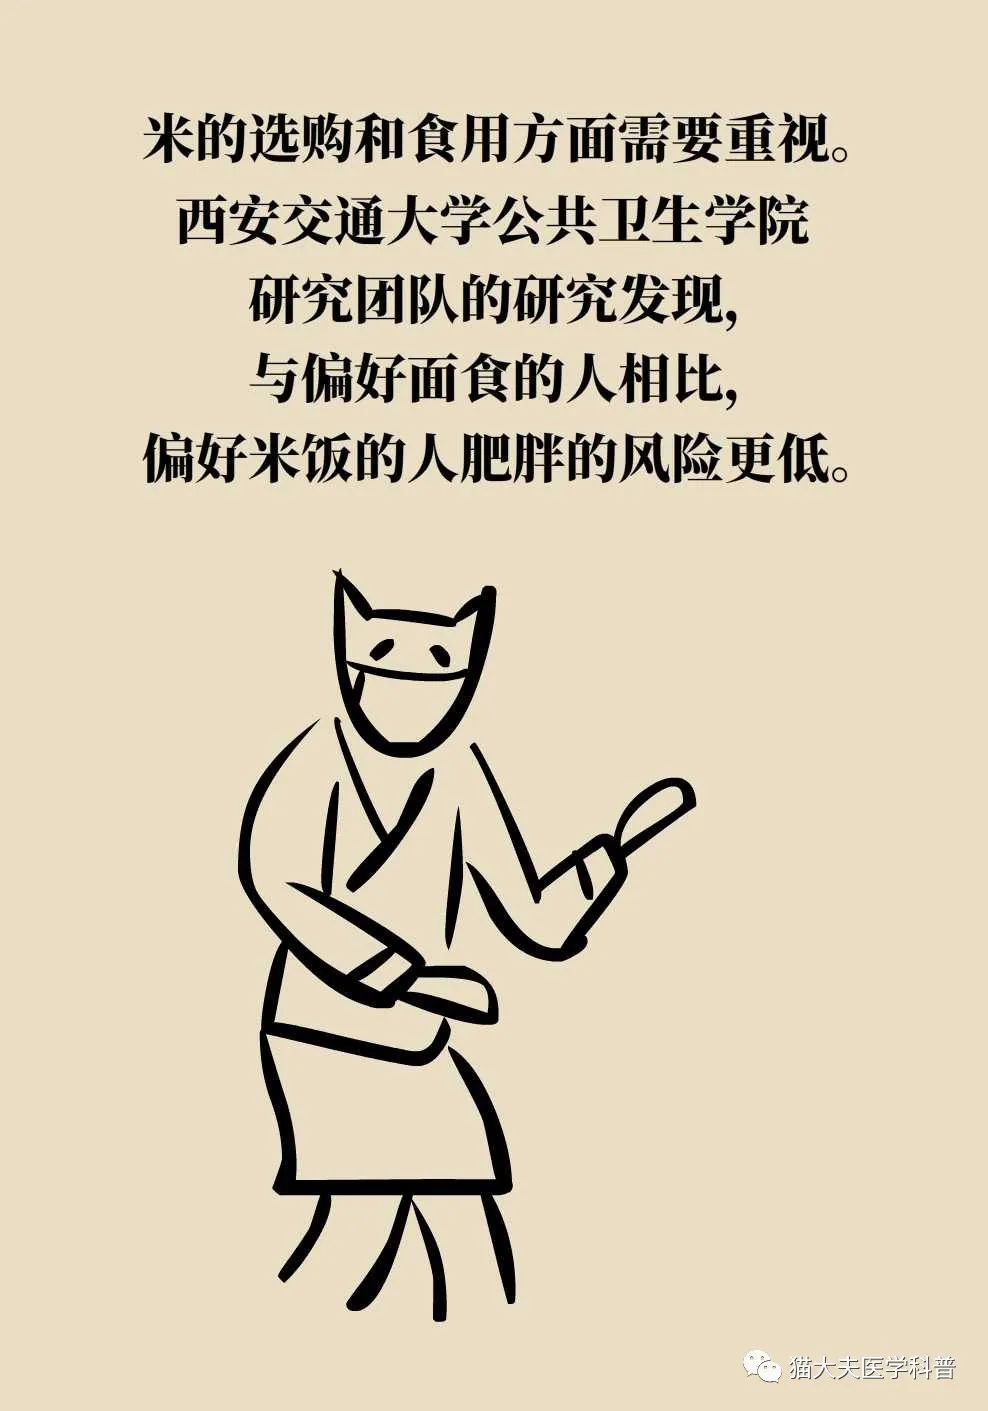 米的选购和食用方面需要重视。
西安交通大学公共卫生学院
研究团队的研究发现，
与偏好面食的人相比，
偏好米饭的人肥胖的风险更低。
猫大夫医学科普